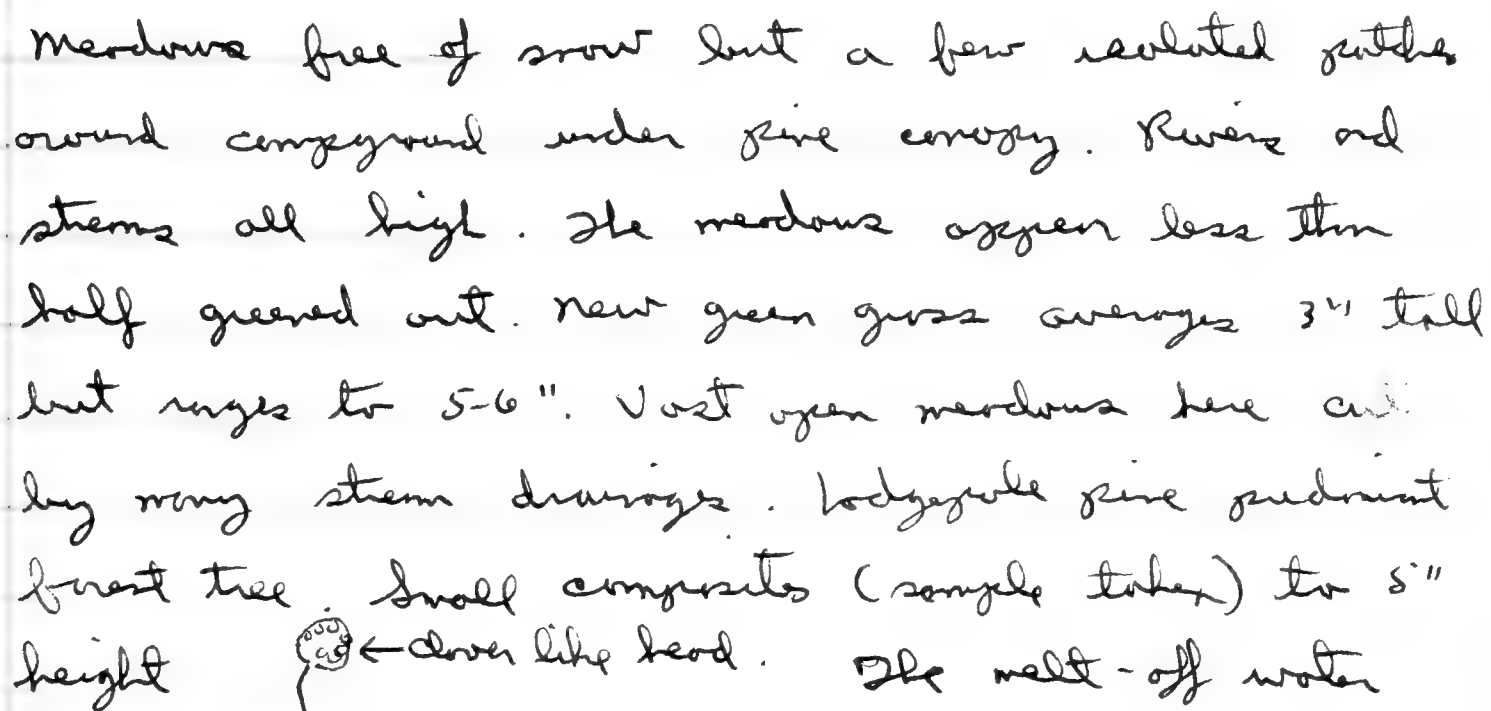 Meadows free of snow but a few isolated patches
around campground under pine canopy. Rivers and
streams all high. The meadows appear less than
half greened out. New green grass averages 3" tall
but ranges to 5-6". Vast open meadows here cut
by many stream drainages. Lodgepole pine predominant
forest tree. Small composites (sample taken) to 5"
height ← clover like head. The melt-off water